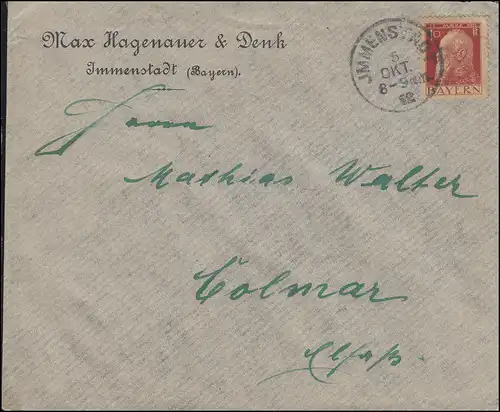 Max Hagenauer & Denk
Immenstadt (Bayern).
IMMENSTADT
5
OKT.
8-9
12
10
BAYERN
Herrn
Mathias Walter
Colmar
Elsaß